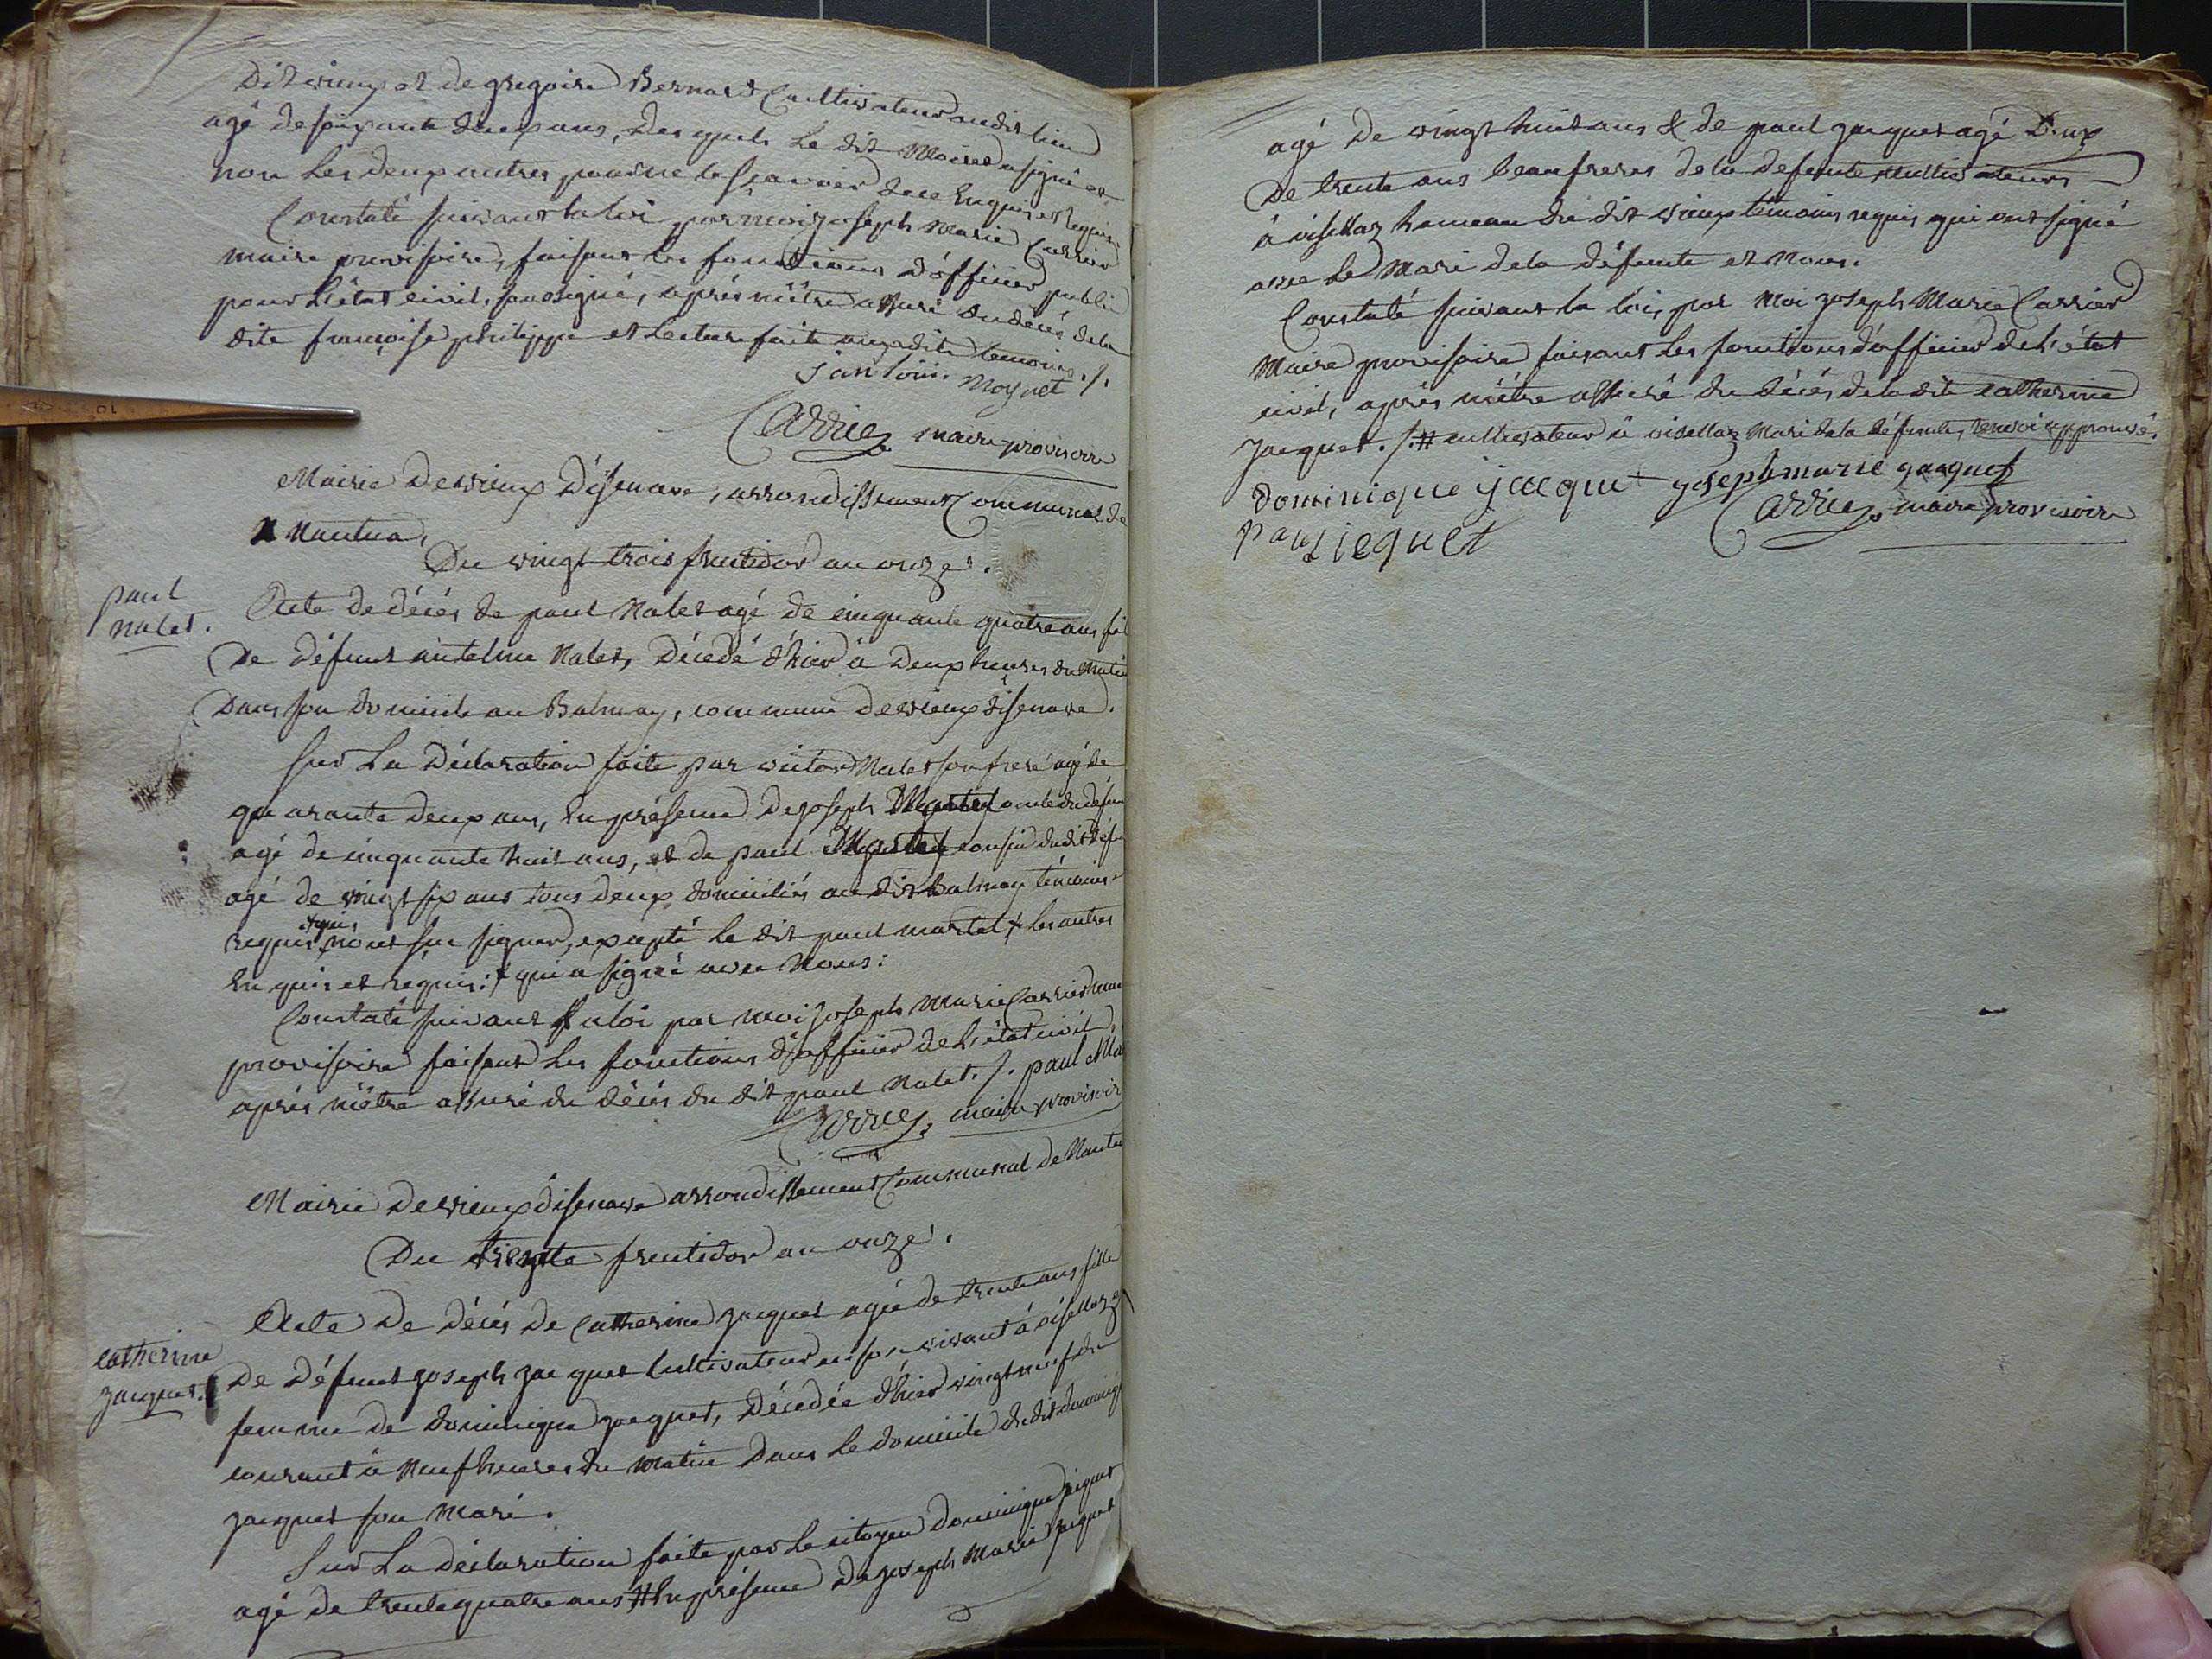 Dit vieux et de gregoire Bernard Cultivateur audit lieu
agé de soixante deux ans, des quels le dit Moinet a signé et
non les deux autres pour ne le sçavoir de ce Enquis et Requis.
Constaté suivant la loi par moi joseph Marie Carrier
maire provisoire, faisant les fonctions d'officier public
pour l'état civil, soussigné, aprés m'être assuré du décés de la
dite françoise philippe et lecture faite auxdits temoins ./.
j antoine Moynet
Carrier maire provisoire
Mairie de vieux d'isenave, arrondissement Communal de
Nantua,
Du vingt trois fructidor an onze.
paul
nalet.
Acte de décés de paul Nalet agé de cinquante quatre ans fil
De défunt antelme Nalet, Décedé d'hier à Deux heures du Matin
Dans son domicile au Balmay, commune de vieux d'isenave.
Sur La Déclaration faite par victor Nalet son frere agé de
quarante deux ans, En présence De joseph Martel oncle du défun
agé de cinquante huit ans, et de paul Martel cousin dudit déf
agé de vingt six ans tous deux domiciliés au dit balmay témoins
requis et qui n'ont sçu signer, excepté le dit paul martel # les autres
Enquis et requis: # qui a signé avec Nous:
Constaté suivant la loi par moi joseph Marie Carrier maire
provisoire faisant les fonctions d'officier de l'état civil,
aprés m'être assuré du décés du dit paul Nalet ./. paul Ma
Carrier, maire provisoir
Mairie de vieux d'isenave arrondissement Communal de Nantu
Du trente fructidor an onze.
catherine
jacquet.
Acte De Décés De Catherine jacquet agée de trente ans fille
De Défunt joseph jacquet Cultivateur en son vivant à oisellaz
femme de dominique jacquet, Décedée d'hier vingt neuf du
courant à Neuf heures du Matin Dans le domicile du dit dominiq
jacquet son Mari.
Sur La déclaration faite par le citoyen Dominique jacquet
agé de trente quatre ans # En présence De joseph Marie jacquet
agé De vingt huit ans & de paul jacquet agé
De trente ans beaufreres de la defunte cultivateurs
à oisellaz hameau du dit vieux témoins requis qui ont signé
avec le Mari de la défunte et Nous.
Constaté suivant la loi, par Moi joseph Marie Carrier
Maire provisoire faisant les fonctions d'officier de l'état
civil, aprés m'être assuré du décés de la dite catherine
jacquet. /. # cultivateur à oisellaz Mari de la défunte, renvoi approuvé.
dominique jacquet josephmarie jacquet
Carrier, maire provisoire
paul jequet